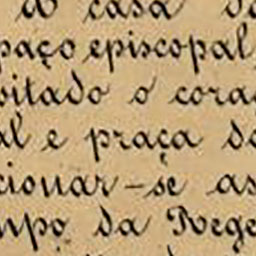 casa d
paço episcopal,
oitado o cora
al e praça d
cionar-se as
mpo da Rege